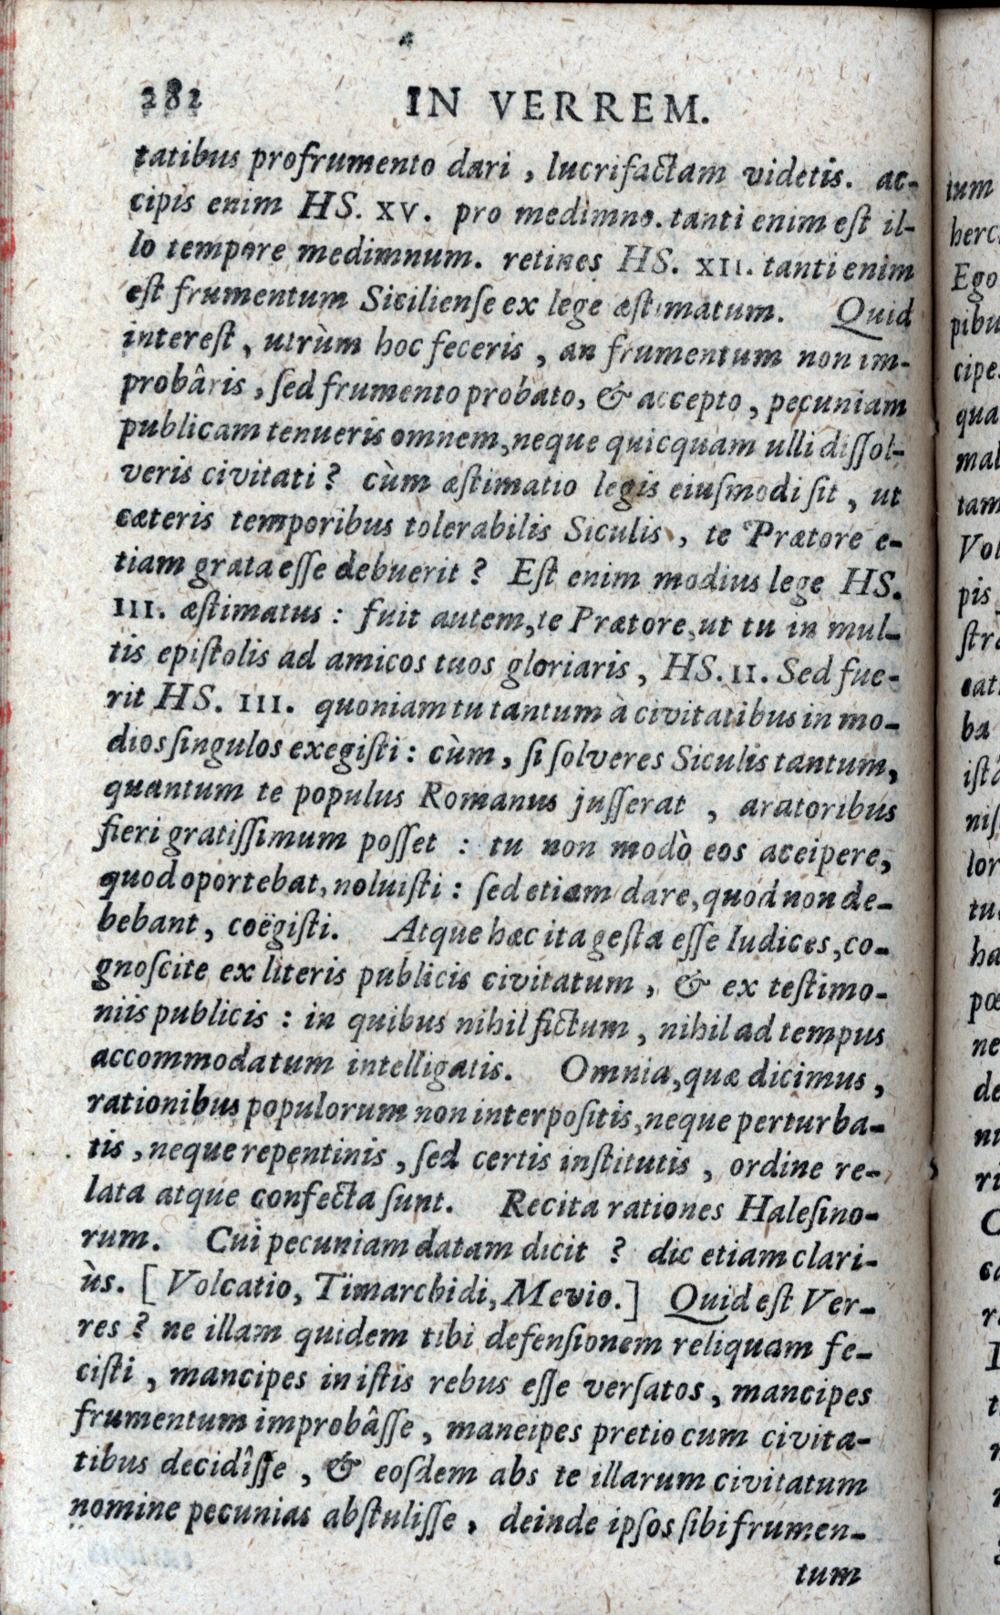 282 IN VERREM.
tatibus profrumento dari, lucrifactam videtis. ac-
cipis enim HS. XV. pro medimno. tanti enim est il-
lo tempore medimnum. retines HS. XII. tanti enim
est frumentum Siciliense ex lege æstimatum. Quid
interest, utrùm hoc feceris, an frumentum non im-
probâris, sed frumento probato, & accepto, pecuniam
publicam tenueris omnem, neque quicquam ulli dissol-
veris civitati? cùm æstimatio legis eiusmodi sit, ut
cæteris temporibus tolerabilis Siculis, te Prætore e-
tiam grata esse debuerit? Est enim modius lege HS.
III. æstimatus: fuit autem, te Prætore, ut tu in mul-
tis epistolis ad amicos tuos gloriaris, HS. II. Sed fue-
rit HS. III. quoniam tu tantum à civitatibus in mo-
dios singulos exegisti: cùm, si solveres Siculis tantum,
quantum te populus Romanus jusserat, aratoribus
fieri gratissimum posset: tu non modò eos accipere,
quod oportebat, noluisti: sed etiam dare, quod non de-
bebant, coëgisti. Atque hæc ita gesta esse Iudices, co-
gnoscite ex literis publicis civitatum, & ex testimo-
niis publicis: in quibus nihil fictum, nihil ad tempus
accommodatum intelligatis. Omnia, quæ dicimus,
rationibus populorum non interpositis, neque perturba-
tis, neque repentinis, sed certis institutis, ordine re-
lata atque confecta sunt. Recita rationes Halesino-
rum. Cui pecuniam datam dicit? dic etiam clari-
ùs. [Volcatio, Timarchidi, Mevio.] Quid est Ver-
res? ne illam quidem tibi defensionem reliquam fe-
cisti, mancipes in istis rebus esse versatos, mancipes
frumentum improbâsse, mancipes pretio cum civita-
tibus decidîsse, & eosdem abs te illarum civitatum
nomine pecunias abstulisse, deinde ipsos sibi frumen-
tum
tum
herc
Ego
pibu
cipe
qua
mal
tam
Vol
pis
stra
cat
ba
istâ
nis
lor
tu
ha
pœ
ne
de